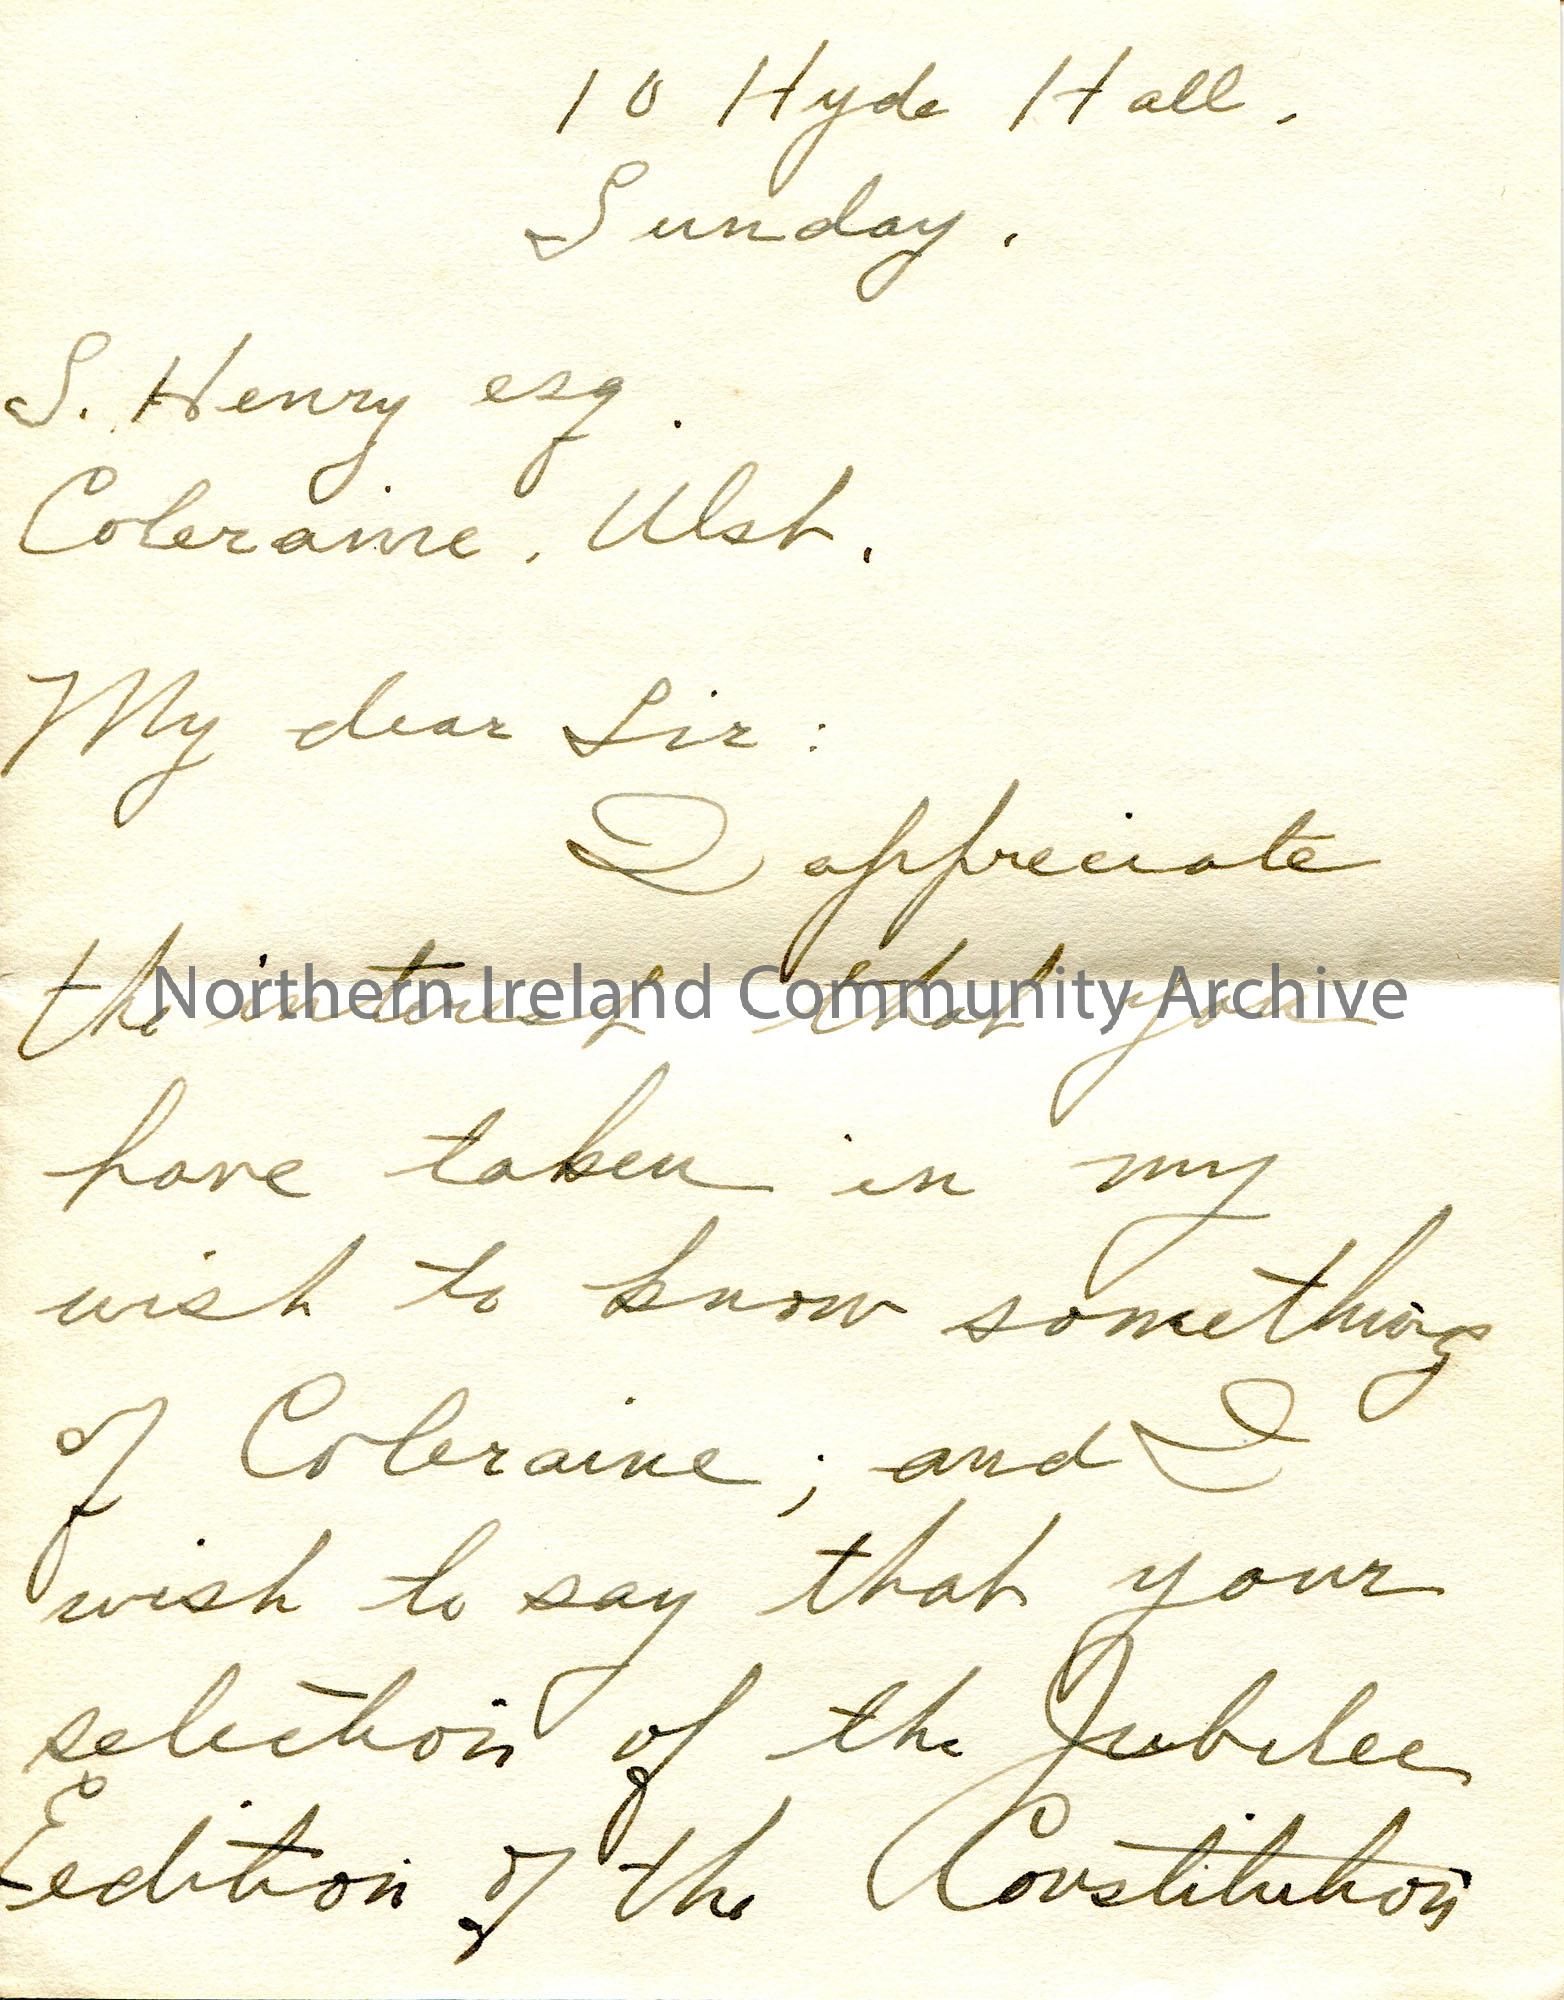 10 Hyde Hall.
Sunday.
S. Henry esq.
Coleraine. Ulst.
My dear Sir:
I appreciate
the interest that you
Northern Ireland Community Archive
have taken in my
wish to know something
of Coleraine; and I
wish to say that your
selection of the Jubilee
Eedition of the Constitution